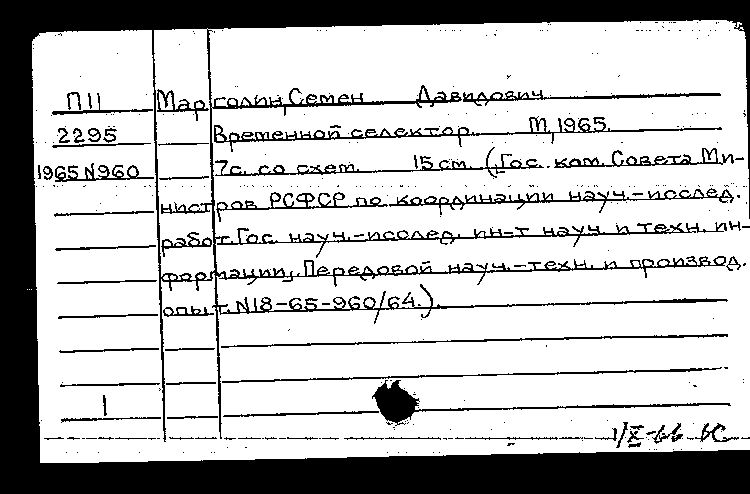 П11 Марголин, Семен Давидович
2295 Временной селектор. М, 1965.
1965 N960 7с. со схем. 15 см. (Гос. ком. Совета Ми-
нистров РСФСР по координации науч.-исслед.
работ. Гос. науч.-исслед. ин-т науч. и техн. ин-
формации. Передовой науч.-техн. и производ.
опыт. N18-65-960/64.).
1
1/X-66